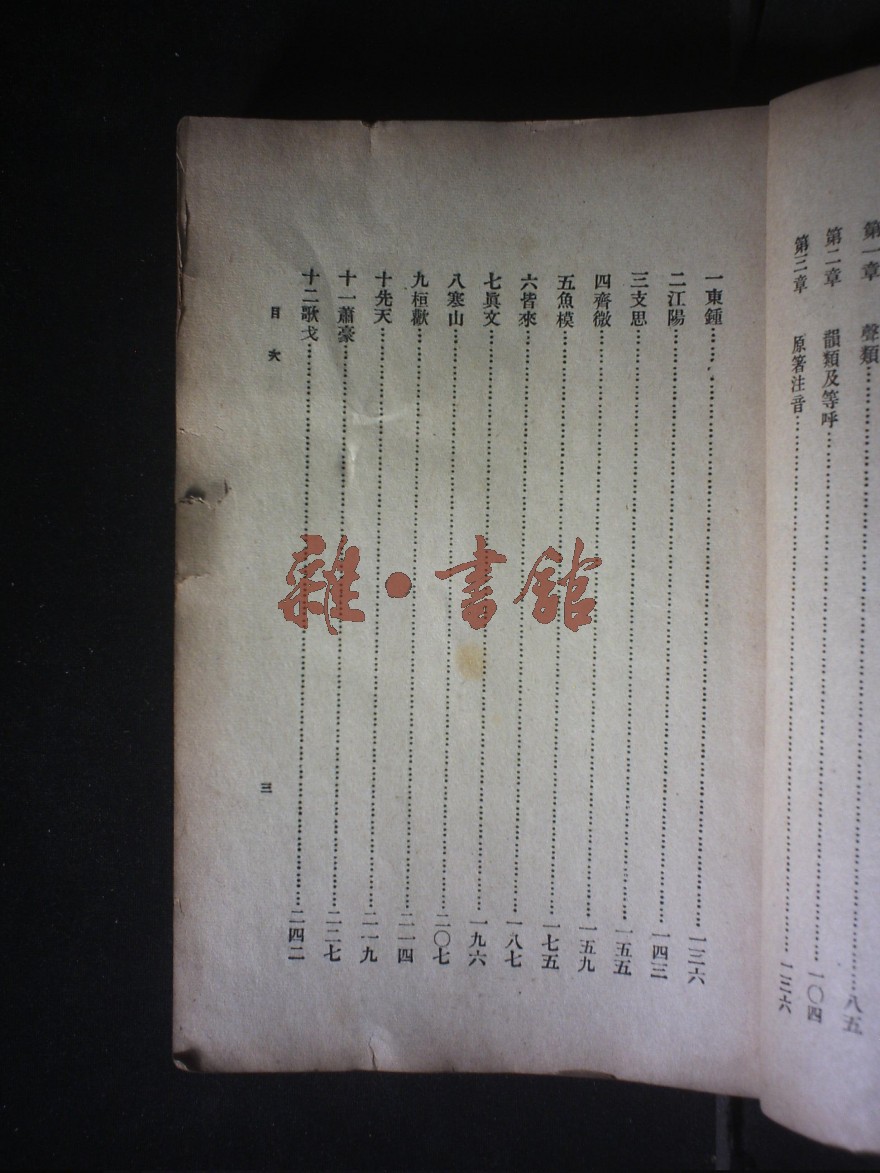 第一章 聲類……八五
第二章 韻類及等呼……一〇四
第三章 原著注音……一三六
一東鍾……一三六
二江陽……一四三
三支思……一五五
四齊微……一五九
五魚模……一七五
六皆來……一八七
七眞文……一九六
八寒山……二〇七
九桓歡……二一四
十先天……二一九
十一蕭豪……二二七
十二歌戈……二四二
目次
三
雜·書館